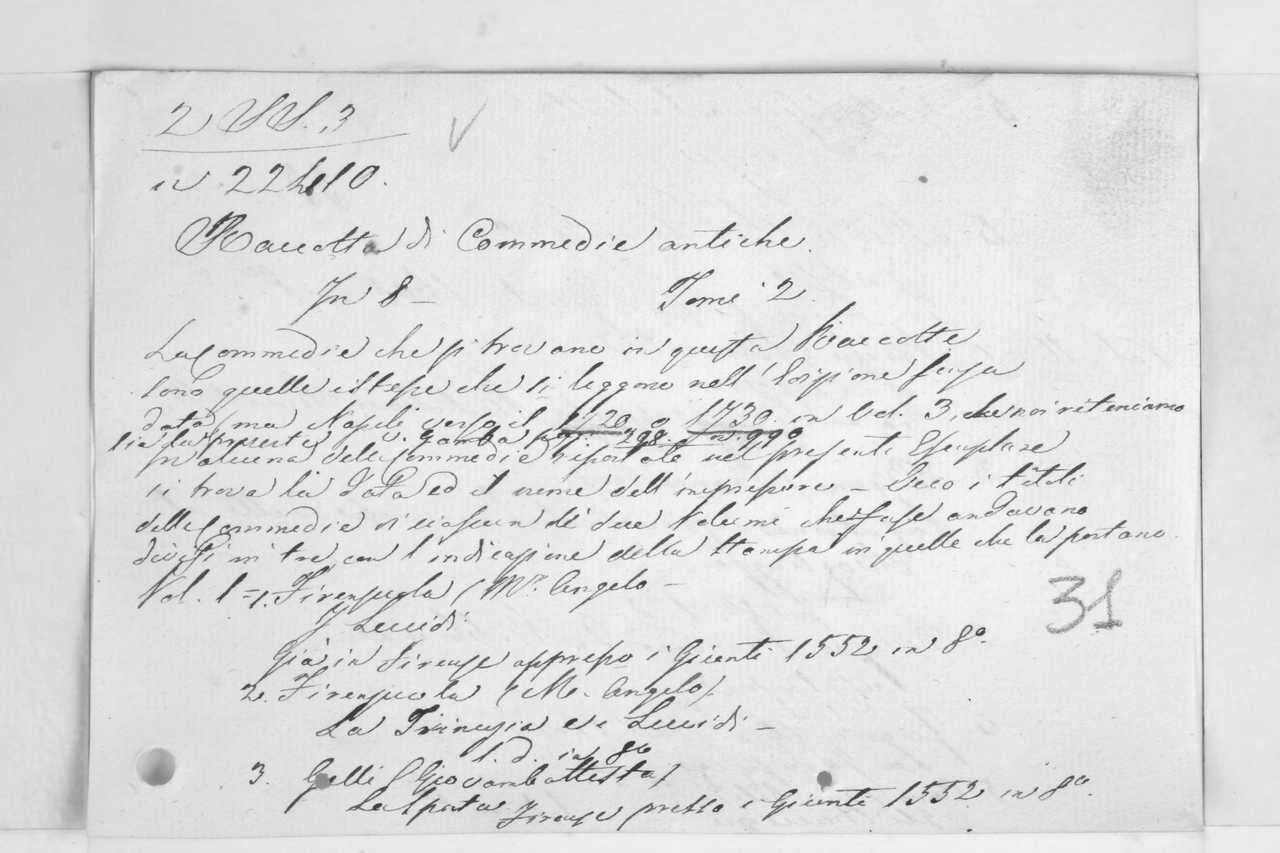 2 SS. 3
in 22410.
Raccolta di Commedie antiche.
In 8 — Tomi 2.
Le Commedie che si trovano in questa Raccolta
sono quelle istesse che si leggono nell'Edizione senza
data (ma Napoli verso il 1720 o 1730 in Vol. 3, che noi riteniamo
sia la presente, v. Gamba pag. 298. n. 990
In alcuna delle Commedie riportate nel presente Esemplare
si trova la data ed il nome dell'impressore — Ecco i titoli
delle Commedie di ciascun de' due Volumi che forse andavano
divisi in tre con l'indicazione della stampa in quelle che la portano.
Vol. 1 = 1. Firenzuola (Mr. Angelo —
I Lucidi
Già in Firenze appresso i Giunti 1552 in 8o.
2. Firenzuola (M. Angelo)
La Trinuzia e i Lucidi —
s. d. in 8o
3. Gelli (Giovambattista)
La Sporta Firenze presso i Giunti 1552 in 8o.
31